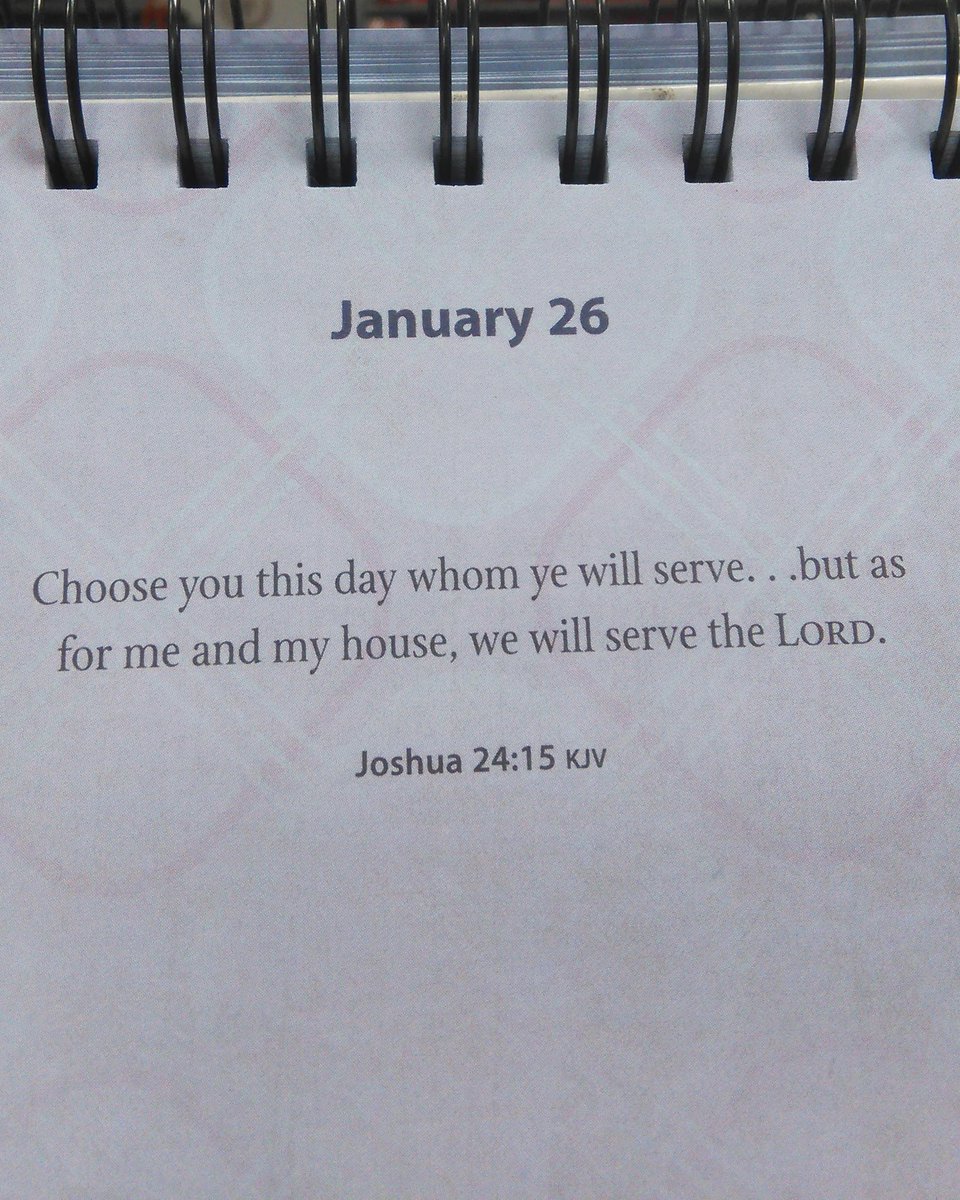 January 26
Choose you this day whom ye will serve. . .but as
for me and my house, we will serve the LORD.
Joshua 24:15 KJV